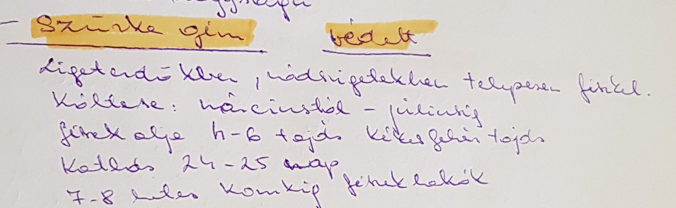 - Szürke gém védett
Ligeterdőkben, nádszigetekben telepesen fészkel.
Költése: márciustól - júliusig
fészekalja 4-6 tojás kékesfehér tojás
Kotlás 24-25 nap
7-8 hetes korukig fészeklakók